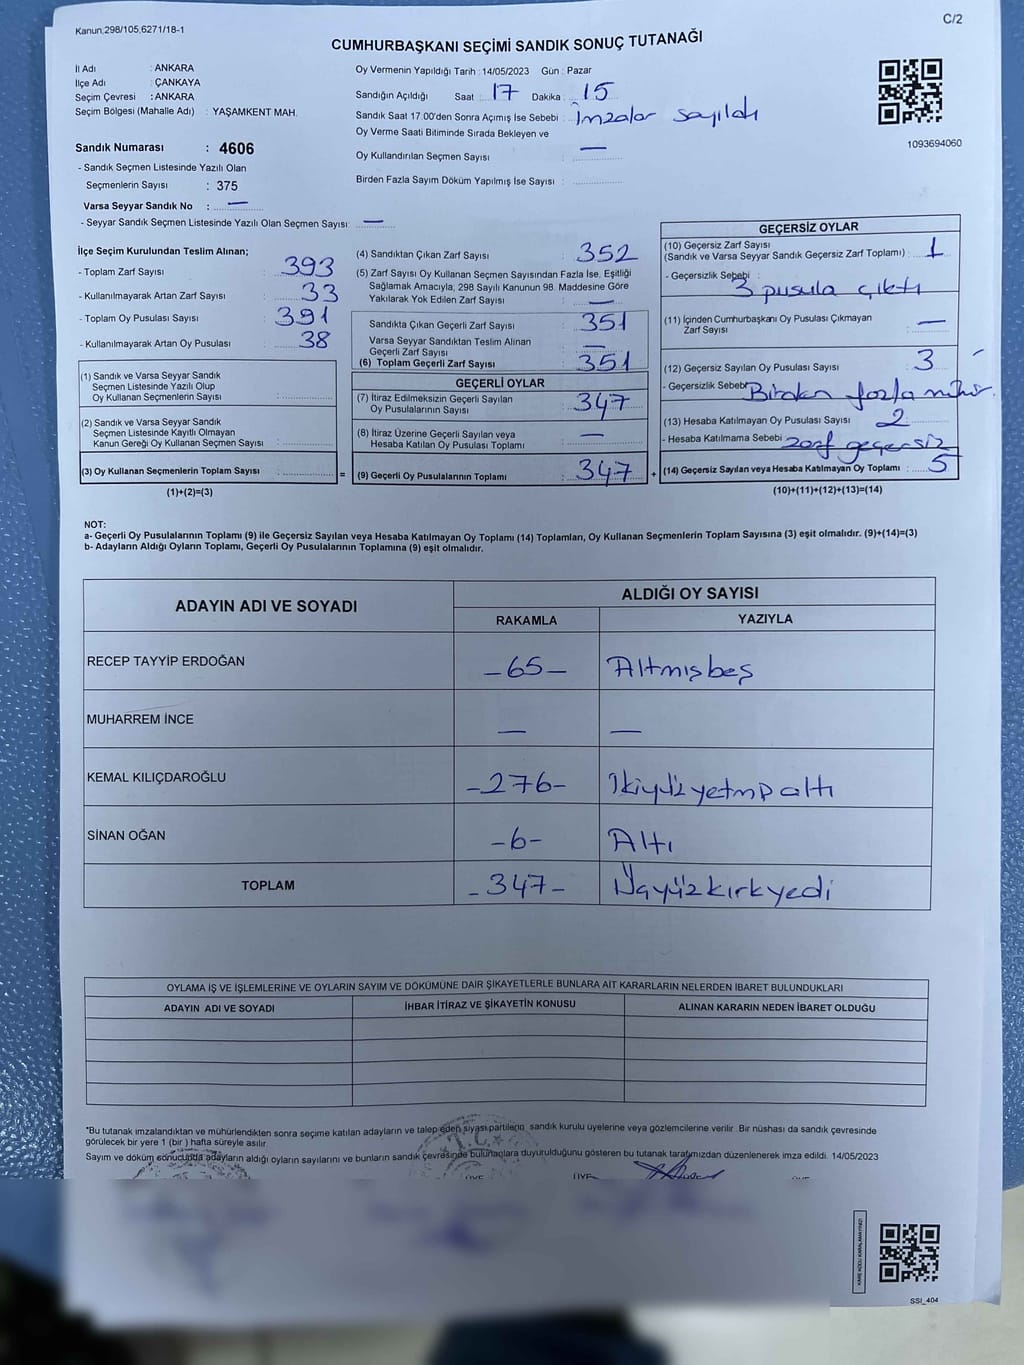 Kanun,298/105,6271/18-1
C/2
CUMHURBAŞKANI SEÇİMİ SANDIK SONUÇ TUTANAĞI
İl Adı : ANKARA
İlçe Adı : ÇANKAYA
Seçim Çevresi : ANKARA
Seçim Bölgesi (Mahalle Adı) : YAŞAMKENT MAH.
Sandık Numarası : 4606
- Sandık Seçmen Listesinde Yazılı Olan
Seçmenlerin Sayısı : 375
Varsa Seyyar Sandık No : —
- Seyyar Sandık Seçmen Listesinde Yazılı Olan Seçmen Sayısı: —
Oy Vermenin Yapıldığı Tarih : 14/05/2023 Gün : Pazar
Sandığın Açıldığı Saat : 17 Dakika : 15
Sandık Saat 17.00'den Sonra Açımış İse Sebebi : İmzalar sayıldı
Oy Verme Saati Bitiminde Sırada Bekleyen ve
Oy Kullandırılan Seçmen Sayısı : —
Birden Fazla Sayım Döküm Yapılmış İse Sayısı :
1093694060
İlçe Seçim Kurulundan Teslim Alınan;
- Toplam Zarf Sayısı : 393
- Kullanılmayarak Artan Zarf Sayısı : 33
- Toplam Oy Pusulası Sayısı : 391
- Kullanılmayarak Artan Oy Pusulası : 38
(1) Sandık ve Varsa Seyyar Sandık
Seçmen Listesinde Yazılı Olup
Oy Kullanan Seçmenlerin Sayısı :
(2) Sandık ve Varsa Seyyar Sandık
Seçmen Listesinde Kayıtlı Olmayan
Kanun Gereği Oy Kullanan Seçmen Sayısı :
(3) Oy Kullanan Seçmenlerin Toplam Sayısı :
(1)+(2)=(3)
(4) Sandıktan Çıkan Zarf Sayısı : 352
(5) Zarf Sayısı Oy Kullanan Seçmen Sayısından Fazla İse, Eşitliği
Sağlamak Amacıyla; 298 Sayılı Kanunun 98. Maddesine Göre
Yakılarak Yok Edilen Zarf Sayısı : —
Sandıkta Çıkan Geçerli Zarf Sayısı : 351
Varsa Seyyar Sandıktan Teslim Alınan
Geçerli Zarf Sayısı : —
(6) Toplam Geçerli Zarf Sayısı : 351
GEÇERLİ OYLAR
(7) İtiraz Edilmeksizin Geçerli Sayılan
Oy Pusulalarının Sayısı : 347
(8) İtiraz Üzerine Geçerli Sayılan veya
Hesaba Katılan Oy Pusulası Toplamı : —
= (9) Geçerli Oy Pusulalarının Toplamı : 347 +
GEÇERSİZ OYLAR
(10) Geçersiz Zarf Sayısı
(Sandık ve Varsa Seyyar Sandık Geçersiz Zarf Toplamı) : 1
- Geçersizlik Sebebi :
3 pusula çıktı
(11) İçinden Cumhurbaşkanı Oy Pusulası Çıkmayan
Zarf Sayısı : —
(12) Geçersiz Sayılan Oy Pusulası Sayısı : 3
- Geçersizlik Sebebi Birden fazla mühür.
(13) Hesaba Katılmayan Oy Pusulası Sayısı : 2
- Hesaba Katılmama Sebebi zarf geçersiz
(14) Geçersiz Sayılan veya Hesaba Katılmayan Oy Toplamı : 5
(10)+(11)+(12)+(13)=(14)
NOT:
a- Geçerli Oy Pusulalarının Toplamı (9) ile Geçersiz Sayılan veya Hesaba Katılmayan Oy Toplamı (14) Toplamları, Oy Kullanan Seçmenlerin Toplam Sayısına (3) eşit olmalıdır. (9)+(14)=(3)
b- Adayların Aldığı Oyların Toplamı, Geçerli Oy Pusulalarının Toplamına (9) eşit olmalıdır.
ADAYIN ADI VE SOYADI
ALDIĞI OY SAYISI
RAKAMLA YAZIYLA
RECEP TAYYİP ERDOĞAN -65- Altmışbeş
MUHARREM İNCE — —
KEMAL KILIÇDAROĞLU -276- İkiyüzyetmişaltı
SİNAN OĞAN -6- Altı
TOPLAM -347- Üçyüzkırkyedi
OYLAMA İŞ VE İŞLEMLERİNE VE OYLARIN SAYIM VE DÖKÜMÜNE DAİR ŞİKAYETLERLE BUNLARA AİT KARARLARIN NELERDEN İBARET BULUNDUKLARI
ADAYIN ADI VE SOYADI İHBAR İTİRAZ VE ŞİKAYETİN KONUSU ALINAN KARARIN NEDEN İBARET OLDUĞU
*Bu tutanak imzalandıktan ve mühürlendikten sonra seçime katılan adayların ve talep eden siyasi partilerin, sandık kurulu üyelerine veya gözlemcilerine verilir. Bir nüshası da sandık çevresinde
görülecek bir yere 1 (bir ) hafta süreyle asılır.
Sayım ve döküm sonucunda adayların aldığı oyların sayılarını ve bunların sandık çevresinde bulunanlara duyurulduğunu gösteren bu tutanak tarafımızdan düzenlenerek imza edildi. 14/05/2023
T.C.
ÜYE ÜYE
SSI_404